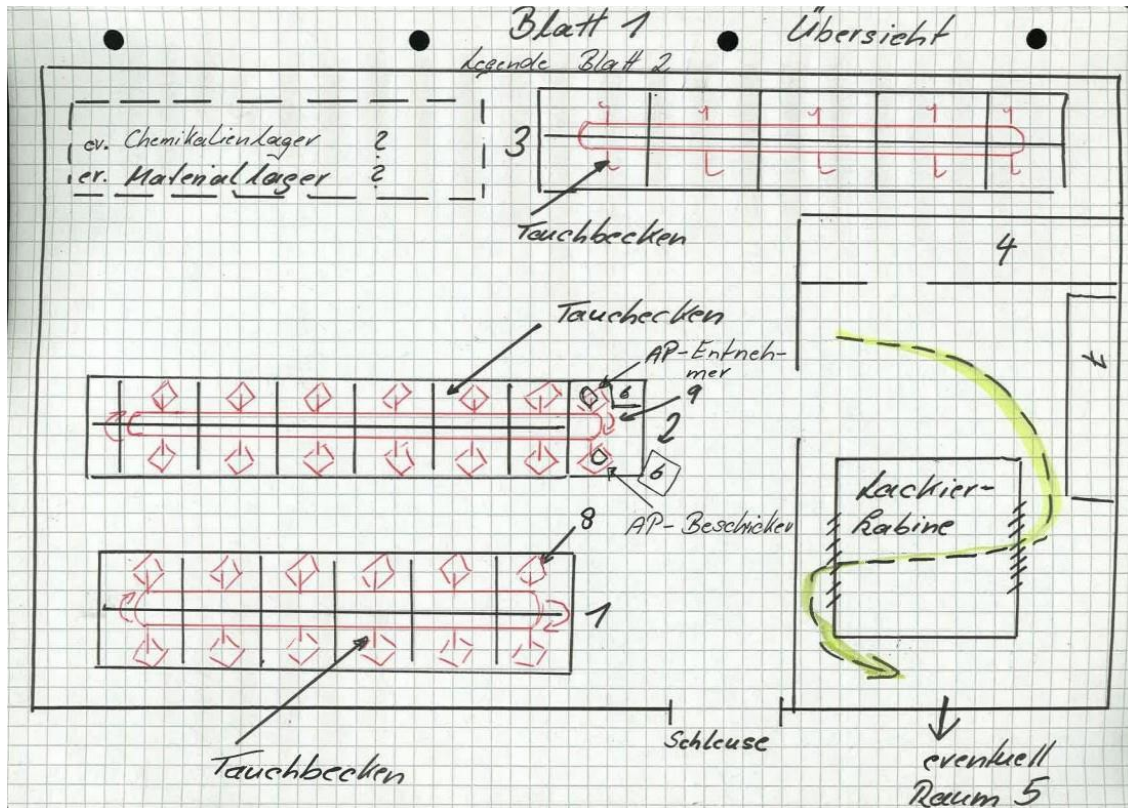 Blatt 1 Übersicht
Legende Blatt 2
ev. Chemikalienlager ?
ev. Materiallager ?
3
Tauchbecken
4
Tauchecken
AP-Entneh-
mer
6
9
2
6
AP-Beschicker
7
Lackier-
kabine
8
1
Tauchbecken
Schleuse
eventuell
Raum 5